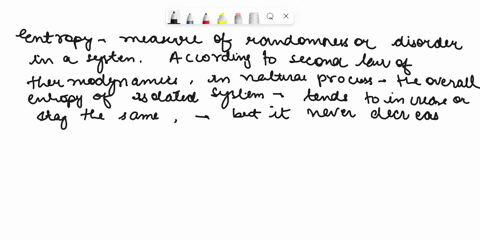 Entropy - measure of randomness or disorder
in a system. According to second law of
thermodynamics, in natural process - the overall
entropy of isolated system - tends to increase or
stay the same, → but it never decreas